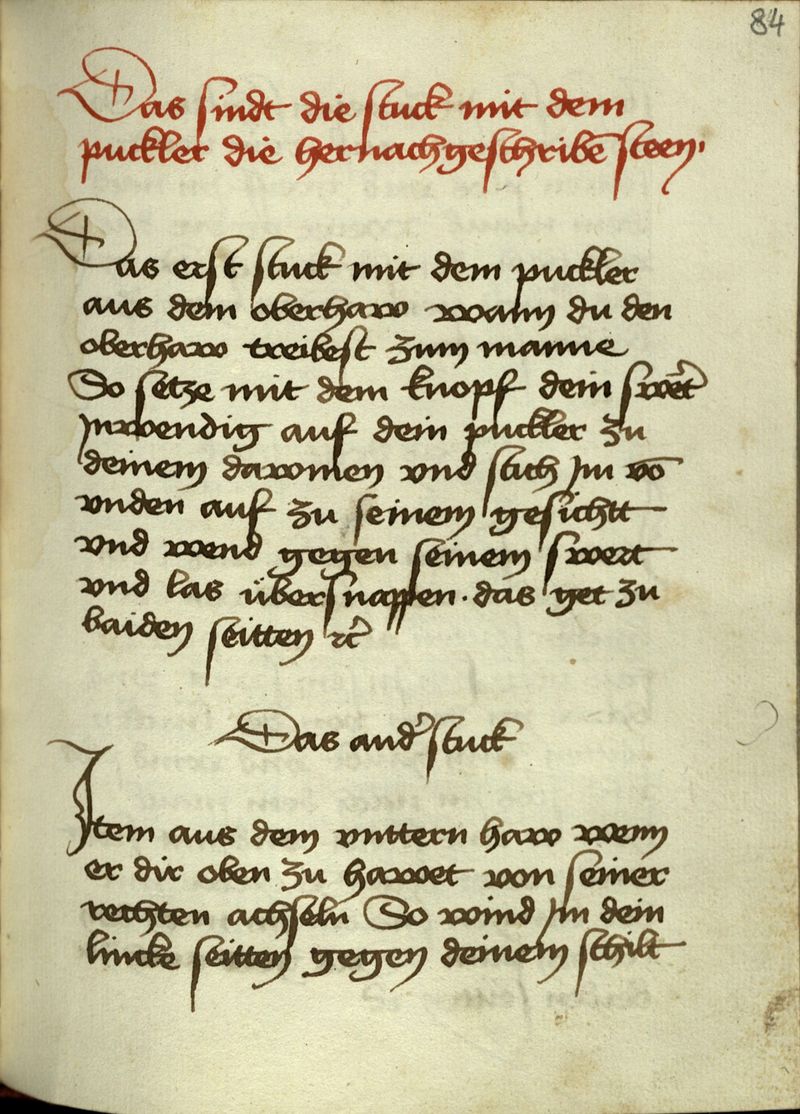 84
Das sindt die stuck mit dem
puckler die hernachgeschribē steen·
Das erst stuck mit dem puckler
aus dem oberhaw wann du den
oberhaw treibest zum manne
So setze mit dem knopf dein swe᷒rt
Inwendig auf dein puckler zu
deinem dawmen vnd stich Im vō
vnden auf zu seinem gesichtt
vnd wend gegen seinem swert
vnd las übersnappen · das get zu
baiden seitten ꝛc̄
Das and᷒ stuck
Item aus dem vnttern haw wenn
er dir oben zu hawet von seiner
rechten achseln So wind Im dein
lincke seitten gegen deinem schilt